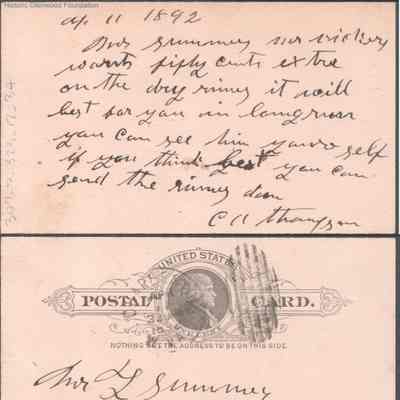 Historic Glenwood Foundation
ap 11 1892
Bro Summey mr vickery
wants fifty cents extra
on the dry rimes it will
best for you in longrun
you can see him youre self
if you think best you can
send the rimes down
C A Thompson
UNITED STATES
POSTAL CARD.
NOTHING BUT THE ADDRESS TO BE ON THIS SIDE.
Bro L Summey